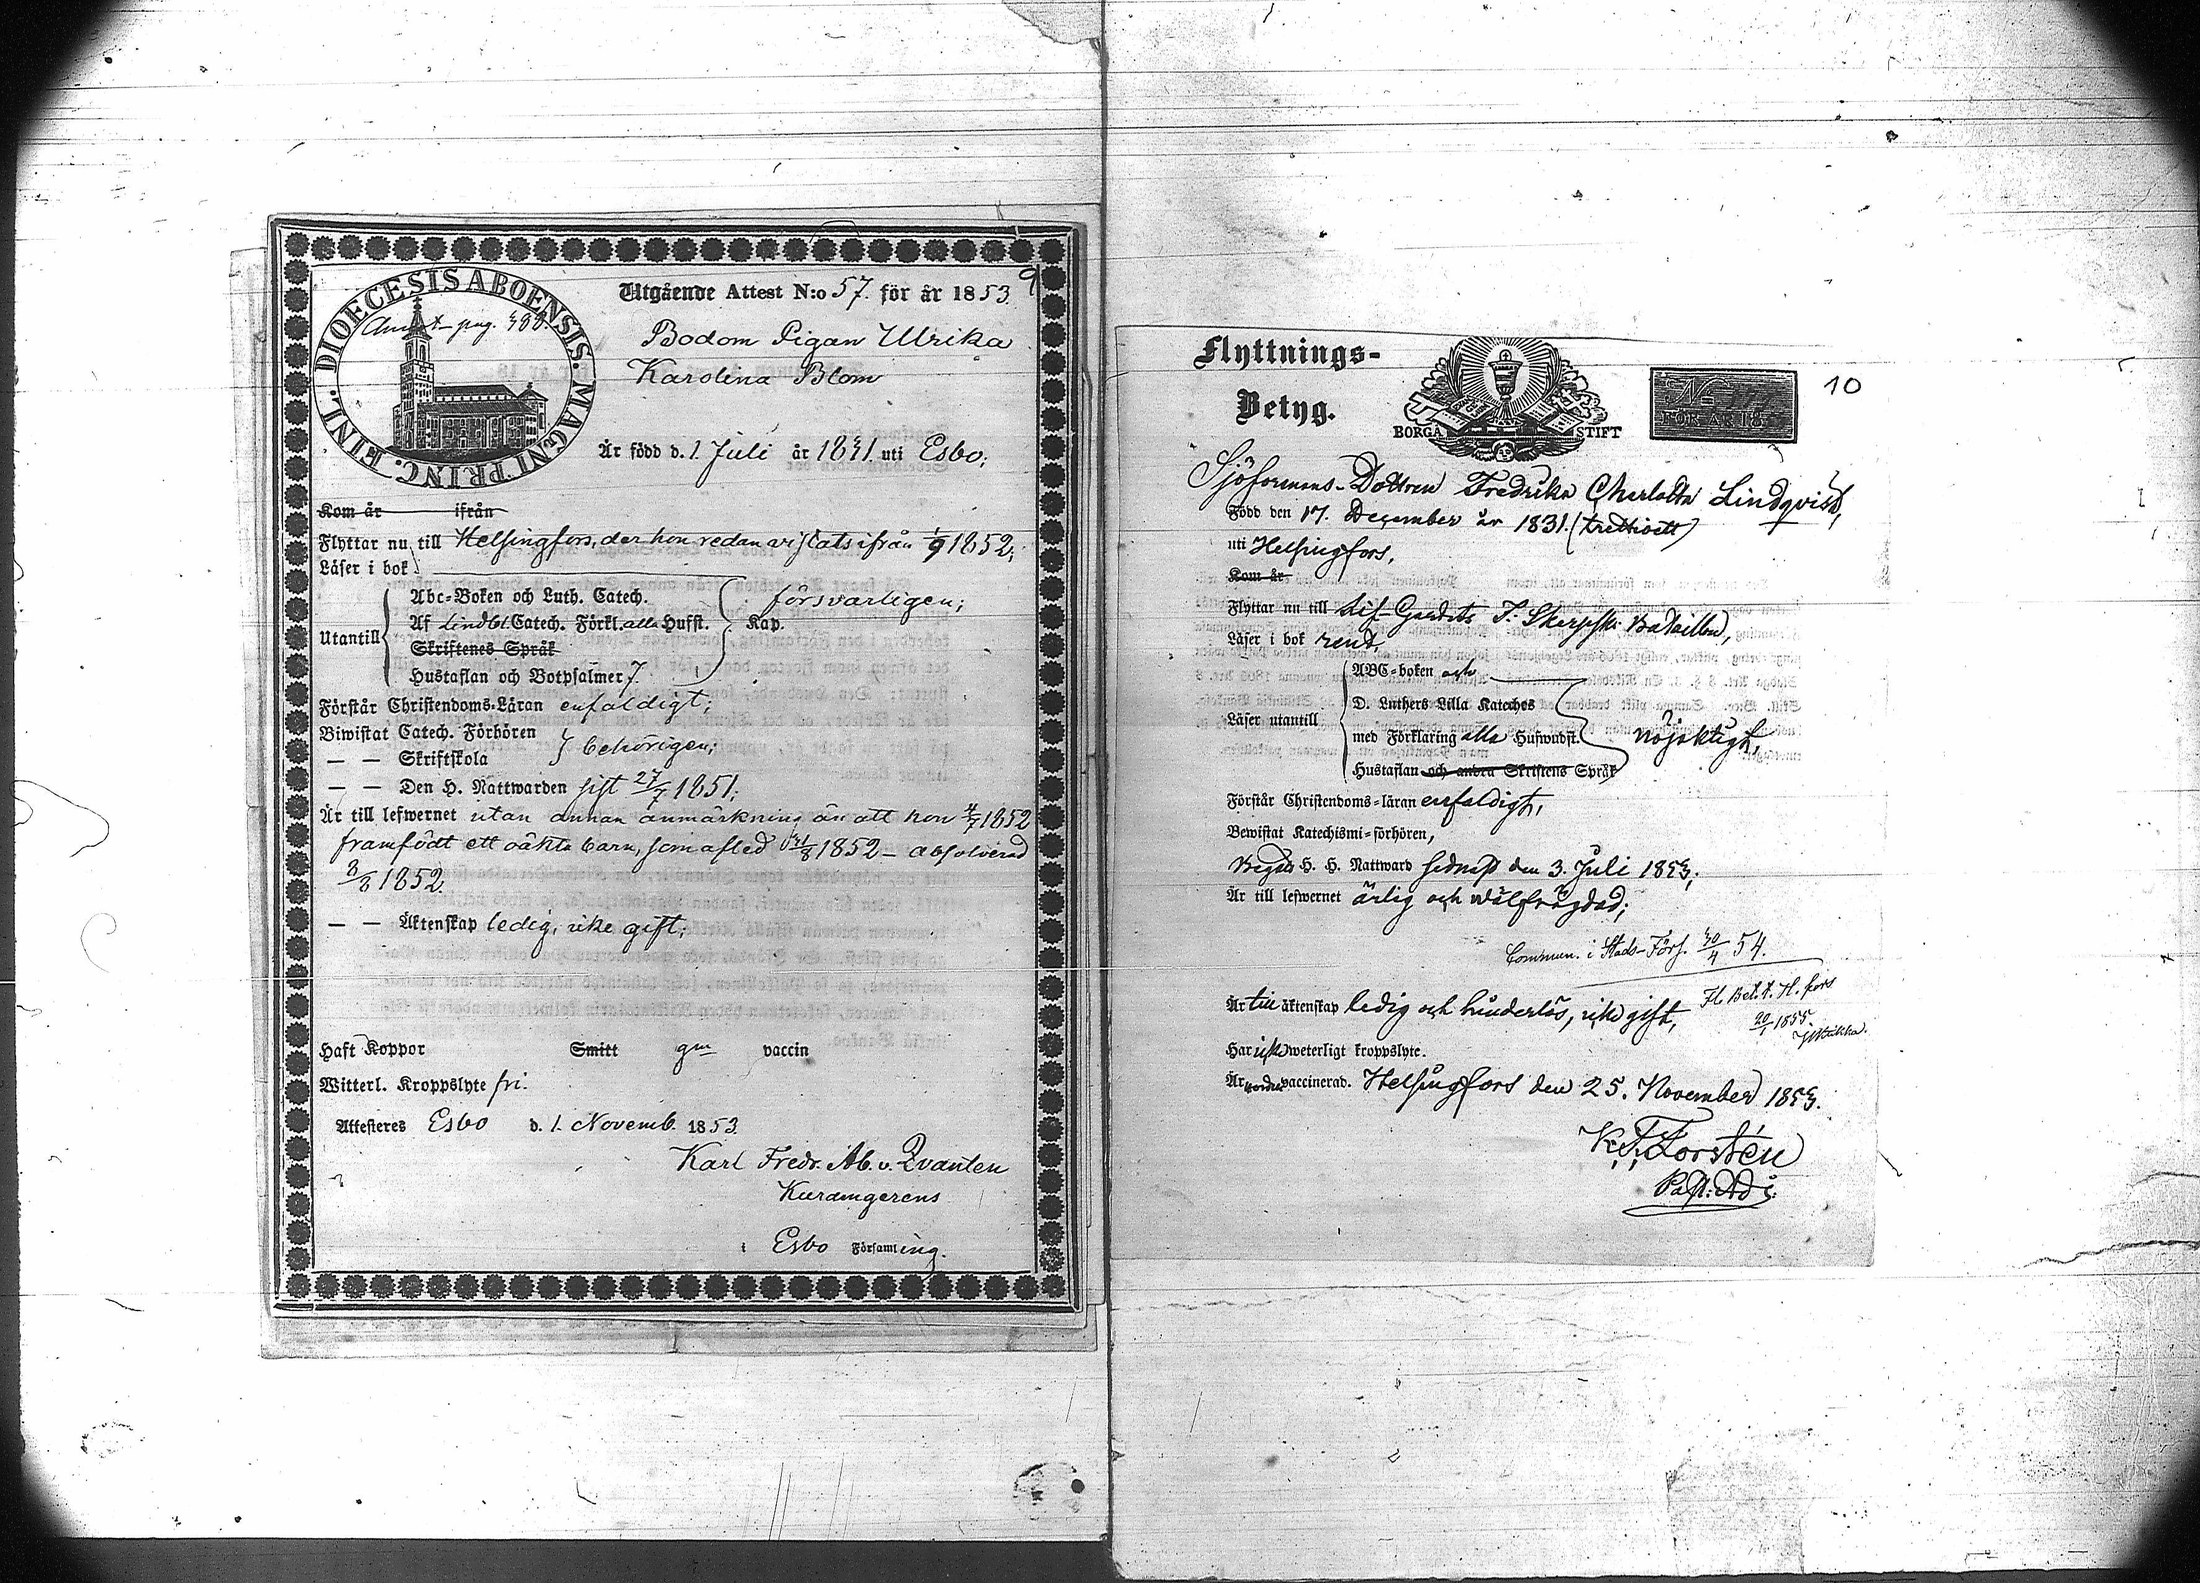 9
DIOECESIS ABOENSIS. MAGNI PRINC. FINL.
pag. 488.
Utgående Attest N:o 57. för år 1853.
Bodom Pigan Ulrika
Karolina Blom
Är född d. 1. Juli år 1831. uti Esbo;
Kom år ifrån
Flyttar nu till Helsingfors, der hon redan vistats ifrån 1/9 1852;
Läser i bok
Utantill
Abc-Boken och Luth. Catech.
Af Lindbl Catech. Förkl. alla Hufst. Kap. försvarligen;
Skriftenes Språk
Hustaflan och Botpsalmer 7.
Förstår Christendoms-Läran enfaldigt;
Biwistat Catech. Förhören
— — Skriftskola } behörigen;
— — Den H. Nattwarden sist 27/7 1851;
Är till lefwernet utan annan anmärkning än att hon 4/7 1852
framfödt ett oäkta barn, som afled 31/8 1852 – absolverad
8/8 1852.
— — Äktenskap ledig, icke gift;
Haft Koppor Smitt gm vaccin
Witterl. Kroppslyte fri.
Attesteres Esbo d. 1. Novemb. 1853.
Karl Fredr. Ab. v. Qvanten
Kuramgerens
i Esbo Församling.
10
Flyttnings-
Betyg.
BORGÅ STIFT
No
FÖR ÅR 18
Sjöformans-Dottren Fredrika Charlotta Lindqvist,
Född den 17. December år 1831. (trettioett)
uti Helsingfors,
Kom år
Flyttar nu till Lif-Gardets F. Skarpsk. Bataillon,
Läser i bok rent,
Läser utantill
ABC-boken och
D. Luthers Lilla Kateches
med Förklaring alla Hufwudst. nöjaktigt,
Hustaflan och andra Skriftens Språk
Förstår Christendoms-läran enfaldigt,
Bewistat Katechismi-förhören,
Begått H. H. Nattward sednast den 3. Juli 1853;
Är till lefwernet ärlig och wälfrägdad;
Commun. i Stads-Förs. 30/4 54.
Är till äktenskap ledig och hinderlös, icke gift,
Fl. Bet. t. H.fors
20/1 1855
Har icke weterligt kroppslyte.
Är worden vaccinerad. Helsingfors den 25. November 1853.
K. F. Forstén
Past: Adj.